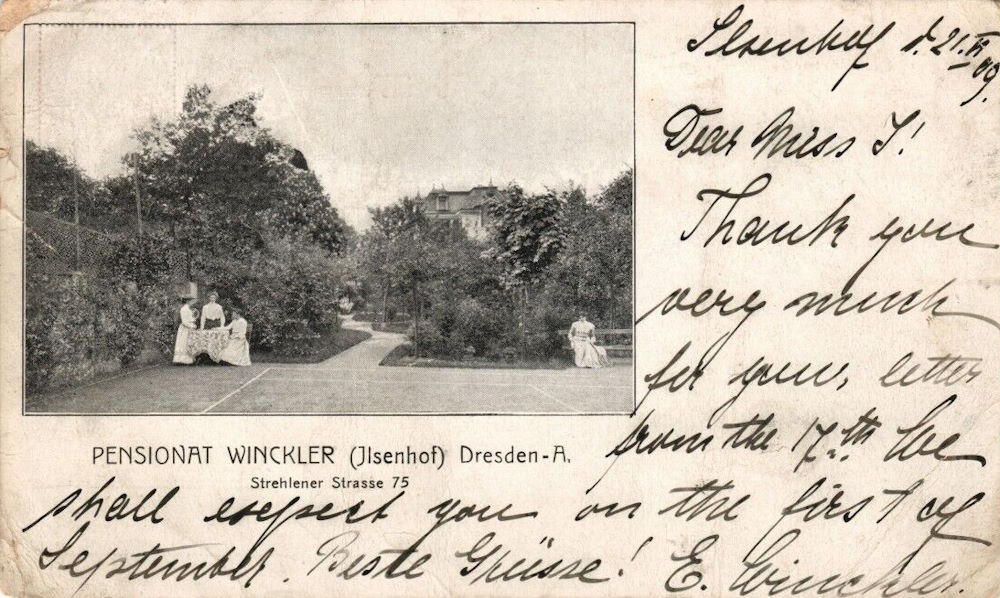 Ilsenhof d. 21. VI 09.
Dear Miss I!
Thank you
very much
for your, letter
from the 17.th We
PENSIONAT WINCKLER (Jlsenhof) Dresden-A.
Strehlener Strasse 75
shall exspect you on the first of
September. Beste Grüsse! E. Winckler.